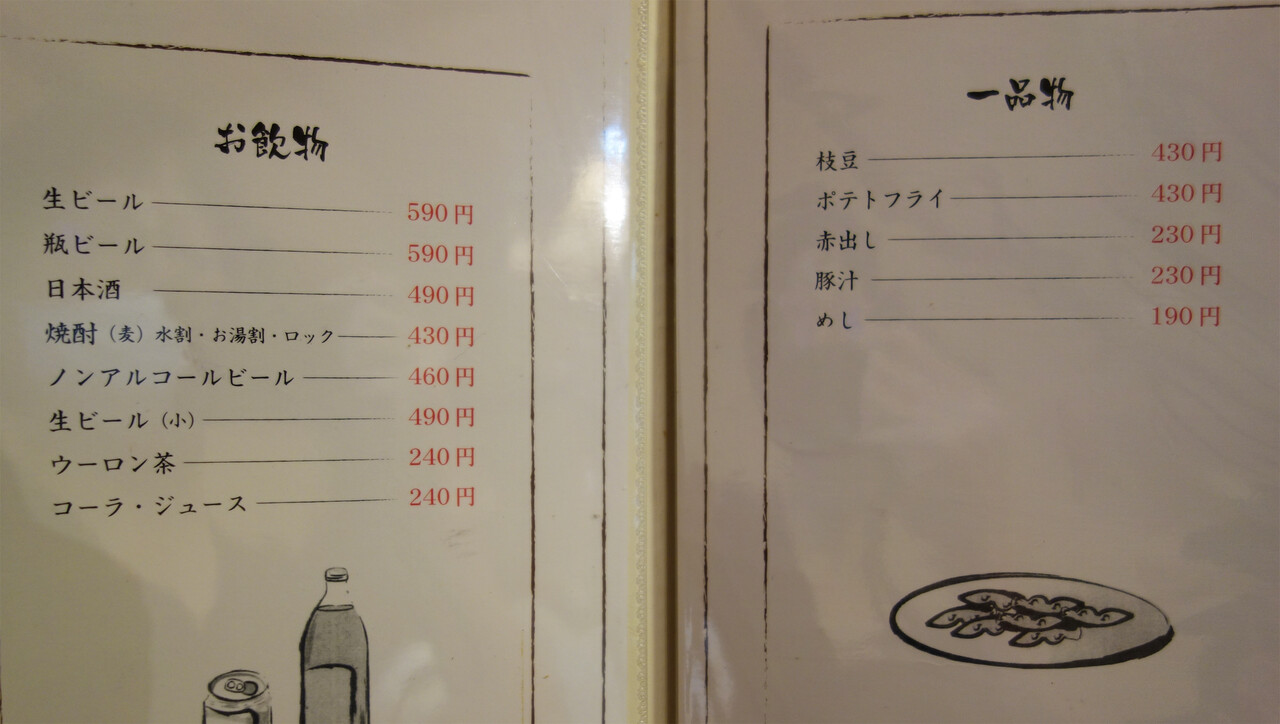 お飲物
生ビール 590円
瓶ビール 590円
日本酒 490円
焼酎（麦）水割・お湯割・ロック 430円
ノンアルコールビール 460円
生ビール（小） 490円
ウーロン茶 240円
コーラ・ジュース 240円
一品物
枝豆 430円
ポテトフライ 430円
赤出し 230円
豚汁 230円
めし 190円